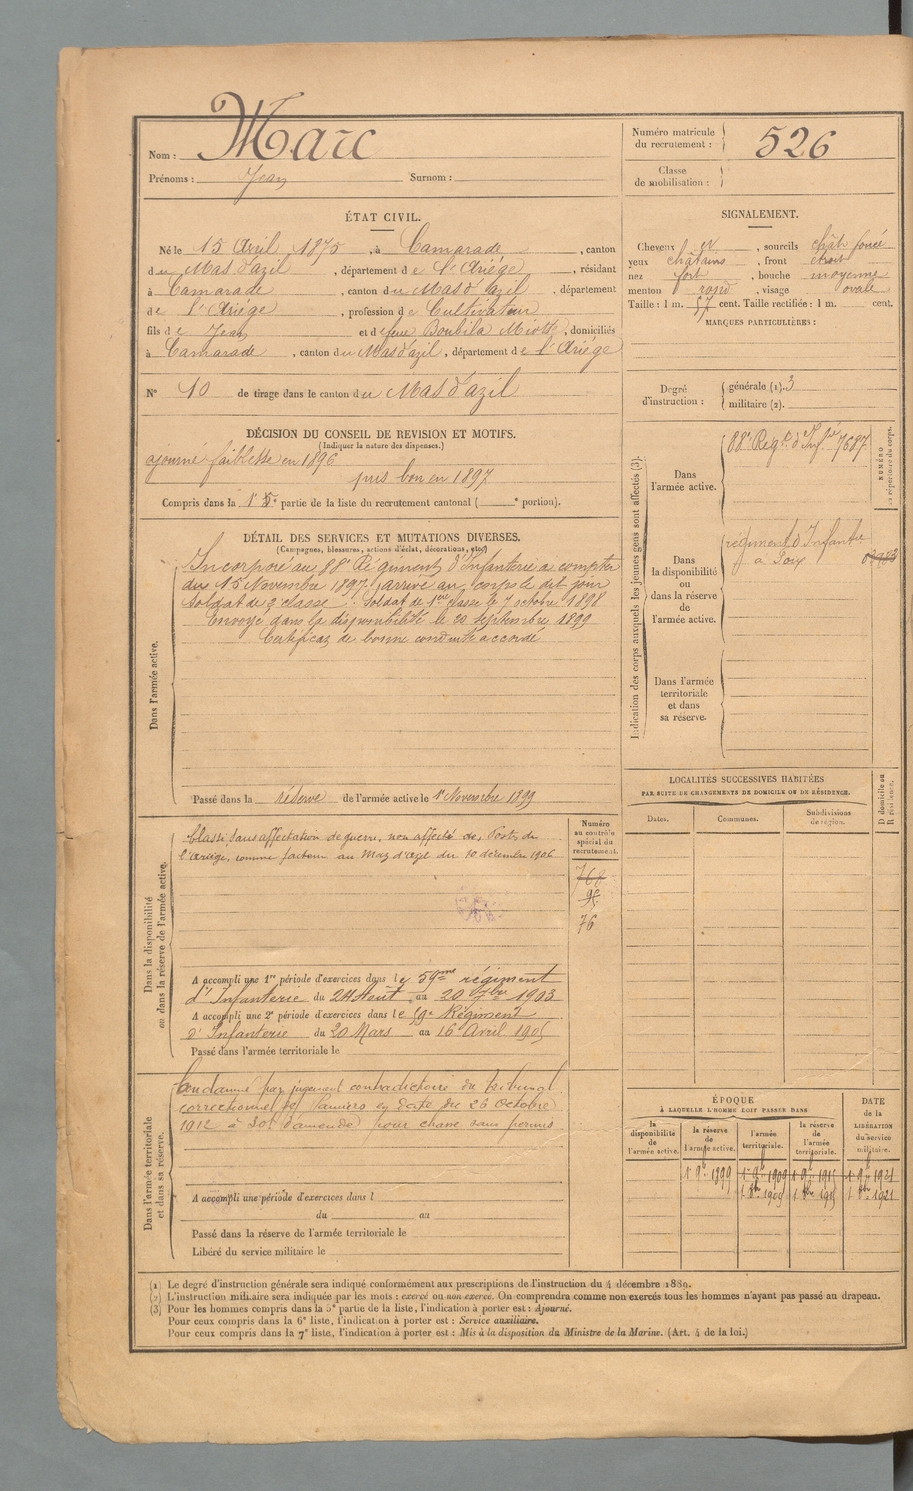 Nom : Marc
Prénoms : Jean Surnom :
Numéro matricule du recrutement : 526
Classe de mobilisation :
ÉTAT CIVIL.
Né le 15 Avril 1875, à Camarade, canton
du Mas d'azil, département de l'Ariége, résidant
à Camarade, canton du Mas d'azil département
de l'Ariége, profession de Cultivateur
fils de Jean et de feue Boubila Miotte, domiciliés
à Camarade, canton du Mas d'azil, département de l'Ariége
N° 10 de tirage dans le canton du Mas d'azil
SIGNALEMENT.
Cheveux , sourcils chât foncé
yeux chatains, front étroit
nez fort, bouche moyenne
menton rond, visage ovale
Taille : 1 m. 57 cent. Taille rectifiée : 1 m. cent.
MARQUES PARTICULIÈRES :
Degré d'instruction : générale (1). 3
militaire (2).
DÉCISION DU CONSEIL DE REVISION ET MOTIFS.
(Indiquer la nature des dispenses.)
ajourné faiblesse en 1896
pris bon en 1897
Compris dans la 1e 5e partie de la liste du recrutement cantonal ( e portion).
DÉTAIL DES SERVICES ET MUTATIONS DIVERSES.
(Campagnes, blessures, actions d'éclat, décorations, etc.)
Dans l'armée active.
Incorporé au 88e Régiment d'Infanterie à compter
du 15 Novembre 1897, arrivé au corps le dit jour
Soldat de 2e classe. Soldat de 1ere classe le 7 octobre 1898
Envoyé dans la disponibilité le 20 Septembre 1899
Certificat de bonne conduite accordé
Passé dans la réserve de l'armée active le 1er Novembre 1899
Indication des corps auxquels les jeunes gens sont affectés (3).
NUMÉRO au répertoire du corps.
Dans l'armée active.
88e Regt d'Infrie 7687
Dans la disponibilité ou dans la réserve de l'armée active.
regiment d'Infantie
à Foix
Dans l'armée territoriale et dans sa réserve.
LOCALITÉS SUCCESSIVES HABITÉES
PAR SUITE DE CHANGEMENTS DE DOMICILE OU DE RÉSIDENCE.
Dates. Communes. Subdivisions de région. D domicile ou R résidence.
Dans la disponibilité ou dans la réserve de l'armée active.
Classé, sans affectation de guerre, non affecté des Postes de
l'Ariège, comme facteur au Maz d'azil du 10 décembre 1906
Numéro au contrôle spécial du recrutement.
768
76
A accompli une 1re période d'exercices dans le 59me régiment
d'Infanterie du 24 Aout au 20 7bre 1903
A accompli une 2e période d'exercices dans le 59e Régiment
d'Infanterie du 20 Mars au 16 Avril 1905
Passé dans l'armée territoriale le
Dans l'armée territoriale et dans sa réserve.
Condamné par jugement contradictoire du tribunal
correctionnel de Pamiers en date du 26 Octobre
1912 à 50f d'amende pour chasse sans permis
A accompli une période d'exercices dans l
du au
Passé dans la réserve de l'armée territoriale le
Libéré du service militaire le
ÉPOQUE
À LAQUELLE L'HOMME DOIT PASSER DANS
la disponibilité de l'armée active. la réserve de l'armée active. l'armée territoriale. la réserve de l'armée territoriale. DATE de la LIBÉRATION du service militaire.
1 9b 1899 1 9b 1909 1 9b 1915 1 9b 1921
1 8b 1909 1 8b 1915 1 8b 1921
(1) Le degré d'instruction générale sera indiqué conformément aux prescriptions de l'instruction du 4 décembre 1889.
(2) L'instruction militaire sera indiquée par les mots : exercé ou non exercé. On comprendra comme non exercés tous les hommes n'ayant pas passé au drapeau.
(3) Pour les hommes compris dans la 5e partie de la liste, l'indication à porter est : Ajourné.
Pour ceux compris dans la 6e liste, l'indication à porter est : Service auxiliaire.
Pour ceux compris dans la 7e liste, l'indication à porter est : Mis à la disposition du Ministre de la Marine. (Art. 4 de la loi.)